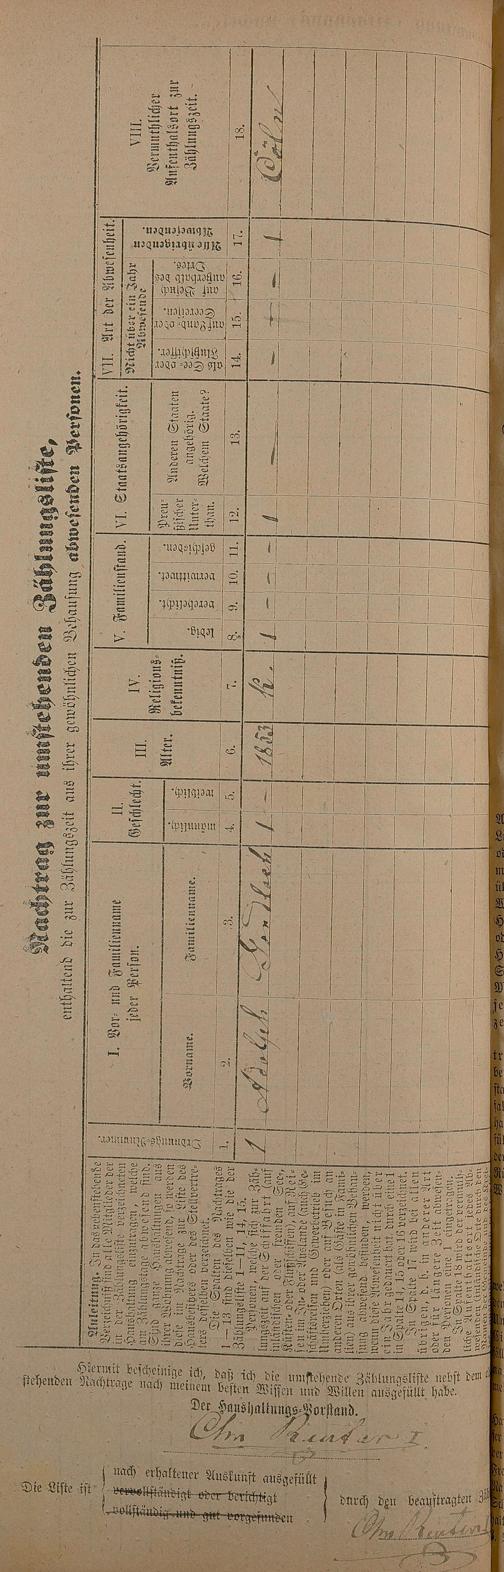 Nachtrag zur umstehenden Zählungsliste,
enthaltend die zur Zählungszeit aus ihrer gewöhnlichen Behausung abwesenden Personen.
Ordnungs-Nummer.
I. Vor- und Familienname
jeder Person.
Vorname.
Familienname.
II.
Geschlecht.
männlich.
weiblich.
III.
Alter.
IV.
Religions-
bekenntniß.
V. Familienstand.
ledig.
verehelicht.
verwittwet.
geschieden.
VI. Staatsangehörigkeit.
Preu-
ßischer
Unter-
than.
Anderen Staaten
angehörig.
Welchem Staate?
VII. Art der Abwesenheit.
Nicht über ein Jahr
Abwesende
als See- oder
Flußschiffer.
auf Land- oder
Seereisen.
auf Besuch
außerhalb des
Ortes.
Alle übrigen
Abwesenden.
VIII.
Vermuthlicher
Aufenthaltsort zur
Zählungszeit.
1. 2. 3. 4. 5. 6. 7. 8. 9. 10. 11. 12. 13. 14. 15. 16. 17. 18.
1 Adolph 1 – 1853 K. 1 – – – 1 – – – – 1 Cöln
Anleitung. In das nebenstehende
Verzeichniß sind alle Mitglieder der
in der Zählungsliste verzeichneten
Haushaltung einzutragen, welche
am Zählungstage abwesend sind.
Sind ganze Haushaltungen aus
ihrer Wohnung abwesend, so werden
diese im Nachtrage zur Liste des
Hausbesitzers oder des Stellvertre-
ters desselben verzeichnet.
Die Spalten des Nachtrages
1—13 sind dieselben wie die der
Zählungsliste 1—11, 14, 15.
Personen, welche sich zur Zäh-
lungszeit auf der Schiffahrt (auf
inländischen oder fremden See-,
Küsten- oder Flußschiffen), auf Rei-
sen im In- oder Auslande (auch Ge-
schäftsreisen und Gewerbebetrieb im
Umherziehen) oder auf Besuch an
anderen Orten als Gäste in Fami-
lien außer ihrer gewöhnlichen Behau-
sung abwesend befinden, werden,
wenn diese Abwesenheit nicht über
ein Jahr gedauert hat, durch eine 1
in Spalte 14, 15 oder 16 verzeichnet.
In Spalte 17 wird bei allen
übrigen, d. h. in anderer Art
oder auf längere Zeit abwesen-
den Personen eine 1 gemacht.
In Spalte 18 wird der vermuth-
liche Aufenthaltsort jedes Ab-
Hiermit bescheinige ich, daß ich die umstehende Zählungsliste nebst dem
stehenden Nachtrage nach meinem besten Wissen und Willen ausgefüllt habe.
Der Haushaltungs-Vorstand.
Chr. Reuter I.
Die Liste ist
nach erhaltener Auskunft ausgefüllt
vervollständigt oder berichtigt
vollständig und gut vorgefunden
durch den beauftragten
Chr. Reuter